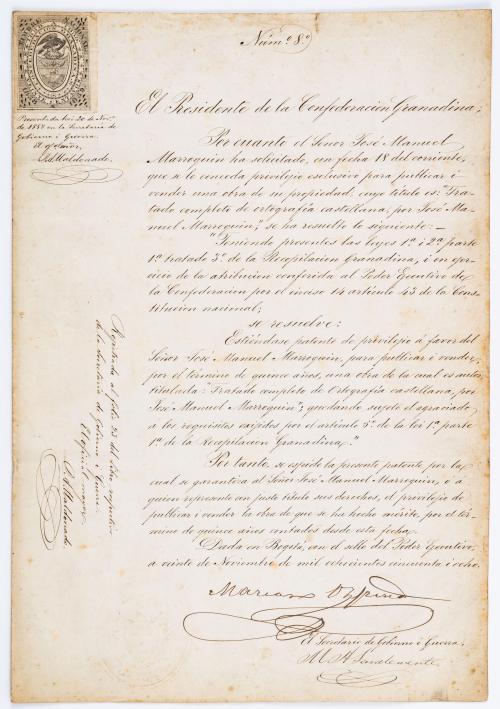 Núm.º 8.º
Presentada hoi 20 de Nov.e
de 1858 en la Secretaría de
Gobierno i Guerra.
El of.l mayor,
R. Maldonado.
El Presidente de la Confederacion Granadina;
Por cuanto el Señor José Manuel
Marroquin ha solicitado, con fecha 18 del corriente,
que se le conceda privilejio esclusivo para publicar i
vender una obra de su propiedad, cuyo título es: "Tra-
tado completo de ortografía castellana, por José Ma-
nuel Marroquin; se ha resuelto lo siguiente: —
"Teniendo presentes las leyes 1.a i 2.a parte
1.a tratado 3.º de la Recopilacion Granadina, i en ejer-
cicio de la atribucion conferida al Poder Ejecutivo de
la Confederacion por el inciso 14 artículo 43 de la Cons-
titucion nacional;
se resuelve:
Estiéndase patente de privilejio á favor del
Señor José Manuel Marroquin, para publicar i vender,
por el término de quince años, una obra de la cual es autor
titulada: "Tratado completo de Ortografía castellana, por
José Manuel Marroquin"; quedando sujeto el agraciado
a los requisitos exijidos por el artículo 5.º de la lei 1.a parte
1.a de la Recopilacion Granadina."
Por tanto, se espide la presente patente, por la
cual se garantiza al Señor José Manuel Marroquin, i á
quien represente con justo título sus derechos, el privilejio de
publicar i vender la obra de que se ha hecho mérito, por el tér-
mino de quince años contados desde esta fecha.
Dada en Bogotá, con el sello del Poder Ejecutivo,
a veinte de Noviembre de mil ochocientos cincuenta i ocho.
Mariano Ospina
El Secretario de Gobierno i Guerra,
M. A. Sanclemente
Rejistrada al folio 23 del libro respectivo
de la Secretaría de Gobierno i Guerra.
El oficial mayor,
R. Maldonado.